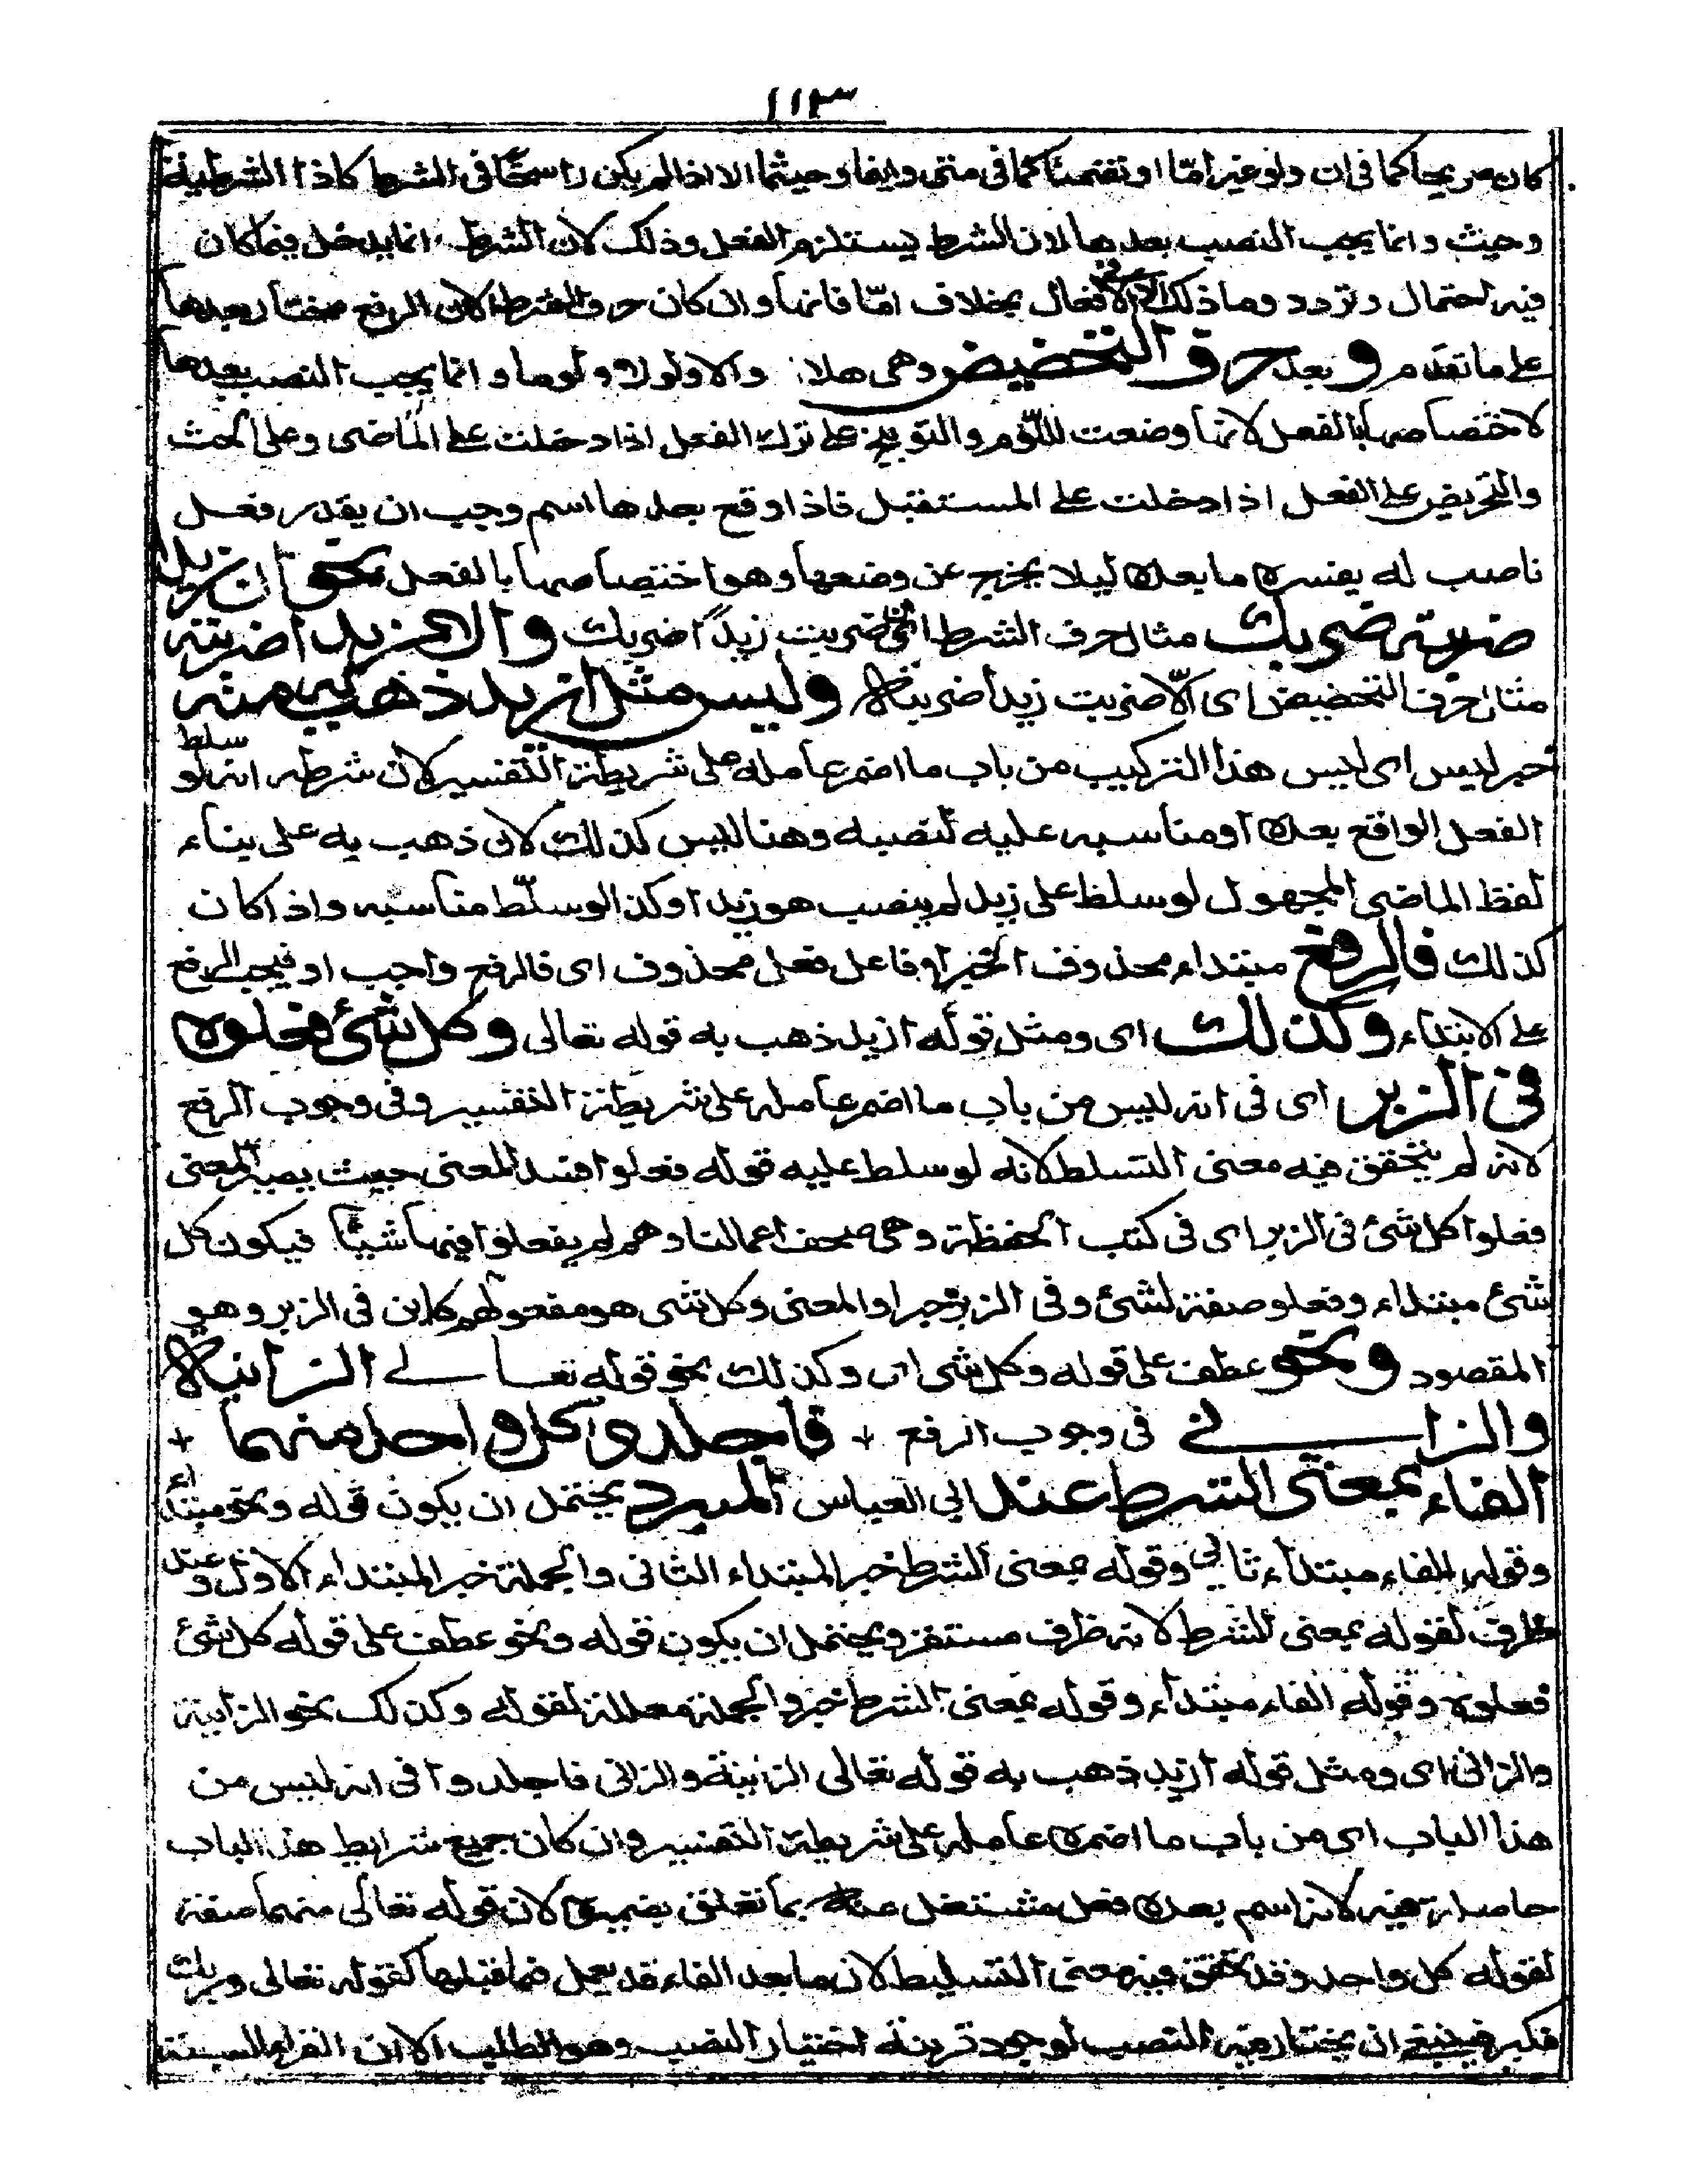 ١١٣
كان صريحا كما فى ان ولو غير امّا او تضمنًا كما فى متى واينما وحيثما الا اذا لم يكن راسخًا فى الشرط كاذا الشرطية
وحيث وانما يجب النصب بعدها لان الشرط يستلزم الفعل وذلك لان الشرط انما يدخل فيما كان
فيه احتمال وتردد وما ذلك الا فى الافعال بخلاف امّا فانها وان كان حرف الشرط الا ان الرفع مختار بعدها
على ما تقدم و بعد حرف التخضيض وهى هلا والا ولولا ولوما وانما يجب النصب بعدها
لاختصاصها بالفعل لانها وضعت لللّوم والتوبيخ على ترك الفعل اذا دخلت على الماضى وعلى الحث
والتحريض على الفعل اذا دخلت على المستقبل فاذا وقع بعدها اسم وجب ان يقدر فعل
ناصب له يفسره ما بعده ليلا يخرج عن وضعها وهو اختصاصها بالفعل نحو ان زيدا
ضربته ضربك مثال حرف الشرط اى ان ضربت زيدًا ضربك والا زيدا ضربته
مثال حرف التخضيض اى الّا ضربت زيدا ضربته وليس مثل ازيد ذهب به منه
خبر ليس اى ليس هذا التركيب من باب ما اضمر عامله على شريطة التفسير لان شرطه انه لو سلط
الفعل الواقع بعده او مناسبه عليه لنصبه وهنا ليس كذلك لان ذهب به على بناء
لفظ الماضى المجهول لو سلط على زيد لم ينصب هو زيد او كذا لو سلّط مناسبه واذا كان
كذلك فالرفع مبتداء محذوف الخبر او فاعل فعل محذوف اى فالرفع واجب او فيجب الرفع
على الابتداء وكذلك اى ومثل قوله ازيد ذهب به قوله تعالى وكل شئ فعلوه
فى الزبر اى فى انه ليس من باب ما اضمر عامله على شريطة التفسير وفى وجوب الرفع
لانه لم يتحقق فيه معنى التسلط لانه لو سلط عليه قوله فعلوا فسد المعنى حيث يصير المعنى
فعلوا كل شئ فى الزبر اى فى كتب الحفظة وهى صحف اعمالنا وهم لم يفعلوا فيها شيئًا فيكون كل
شئ مبتداء وفعلو صفة لشئ وفى الزبر خبرا والمعنى وكل شى هو مفعولهم كاين فى الزبر وهو
المقصود ونحو عطف على قوله وكل شى اى وكذلك نحو قوله تعالى الزانية
والزانى فى وجوب الرفع + فاجلدوا كل واحد منهما +
الفاء بمعنى الشرط عند ابى العباس المبرد يحتمل ان يكون قوله ونحو مبتداء
وقوله الفاء مبتداء ثانى وقوله بمعنى الشرط خبر المبتداء الثانى والجملة خبر المبتداء الاول وعند
ظرف لقوله بمعنى الشرط لانه ظرف مستقر ويحتمل ان يكون قوله ونحو عطف على قوله كل شئ
فعلوه وقوله الفاء مبتداء وقوله بمعنى الشرط خبر والجملة معللة لقوله وكذلك نحو الزانية
والزانى اى ومثل قوله ازيد ذهب به قوله تعالى الزانية والزانى فاجلدوا فى انه ليس من
هذا الباب اى من باب ما اضمره عامله على شريطة التفسير وان كان جميع شرايط هذا الباب
حاصلة فيه لانه اسم بعده فعل مشتغل عنه بما تعلق بضميره لان قوله تعالى منهما صفة
لقوله كل واحد وقد تحقق فيه معنى التسليط لان ما بعد الفاء قد يعمل فيما قبلها كقوله تعالى وربك
فكبر فينبغى ان يختار فيه النصب لوجود قرينة اختيار النصب وهو الطلب الا ان القراء السبعة